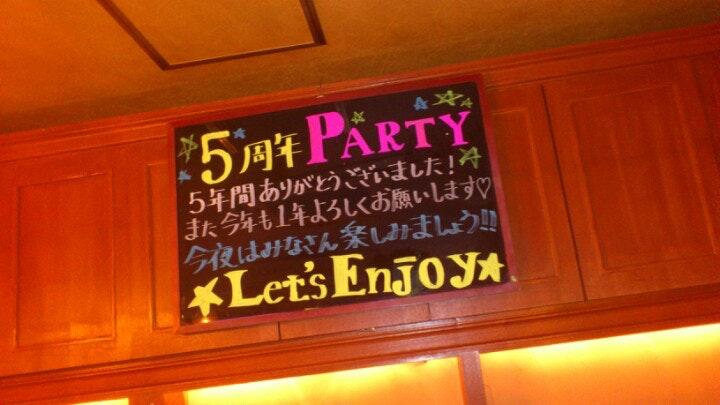 5周年PARTY
5年間ありがとうございました!
また今年も1年よろしくお願いします♡
今夜はみなさん楽しみましょう!!
★Let'sEnjoy★